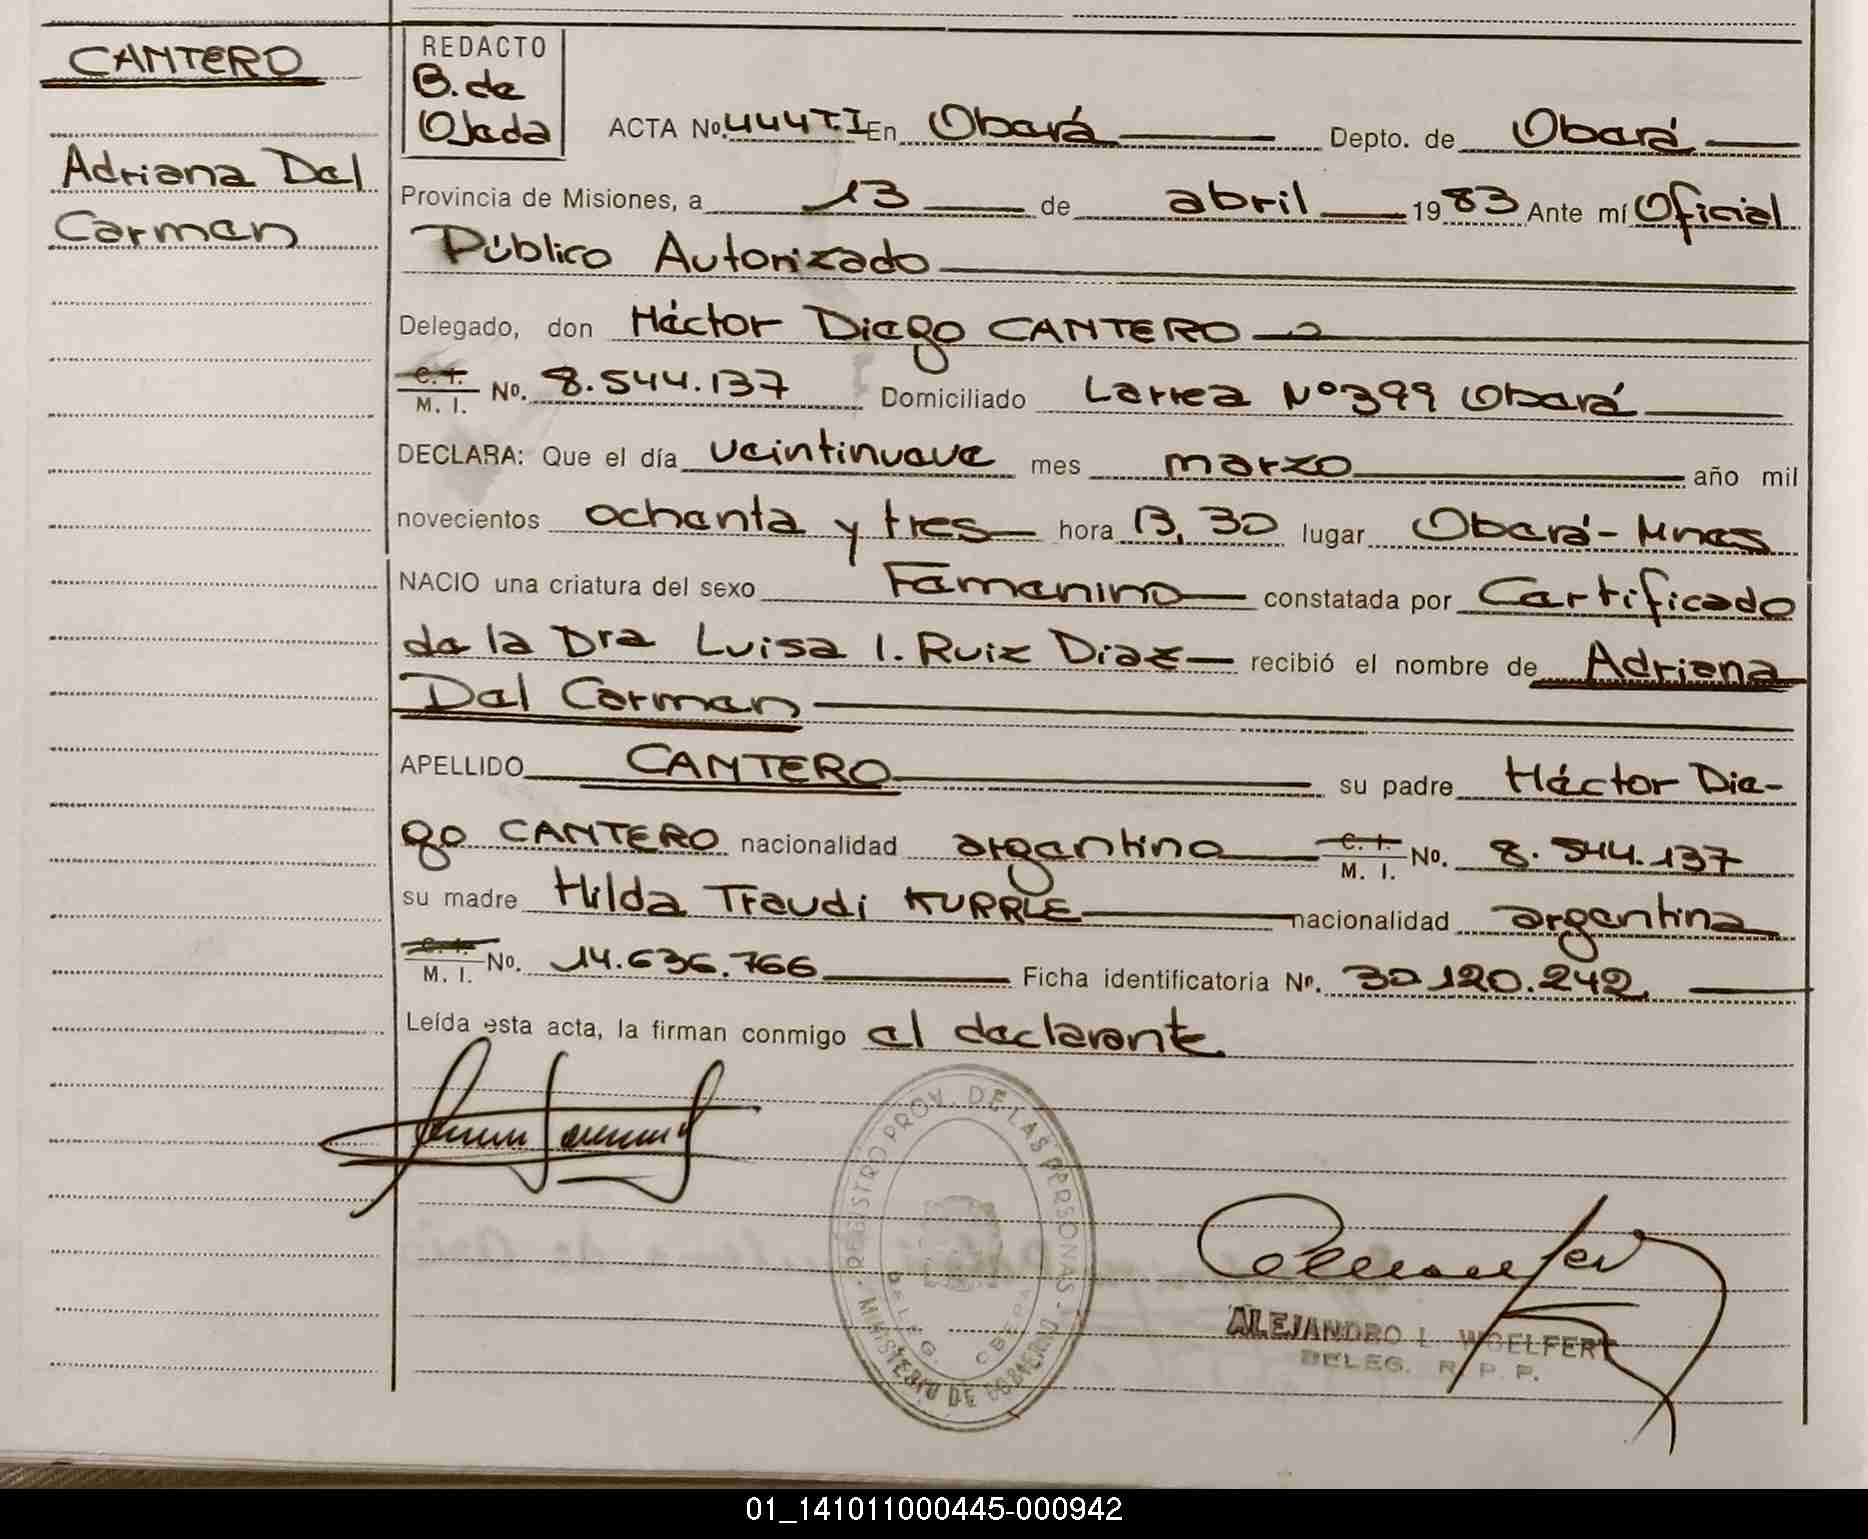 CANTERO
Adriana Del
Carmen
REDACTO
B. de
Ojeda
ACTA No. 444 T. I En Oberá Depto. de Oberá
Provincia de Misiones, a 13 de abril 1983 Ante mí Oficial
Público Autorizado
Delegado, don Héctor Diego CANTERO
C. I.
M. I. No. 8.544.137 Domiciliado Larrea Nº 399 Oberá
DECLARA: Que el día veintinueve mes marzo año mil
novecientos ochenta y tres hora 13,30 lugar Oberá - Mnes
NACIO una criatura del sexo Femenino constatada por Certificado
de la Dra Luisa I. Ruiz Diaz recibió el nombre de Adriana
Del Carmen
APELLIDO CANTERO su padre Héctor Die-
go CANTERO nacionalidad argentino C. I.
M. I. No. 8.544.137
su madre Hilda Traudi KURRLE nacionalidad argentina
C. I.
M. I. No. 14.636.766 Ficha identificatoria Nº. 30.120.242
Leída esta acta, la firman conmigo el declarante
REGISTRO PROV. DE LAS PERSONAS - MINISTERIO DE GOBIERNO
DELEG. OBERA
ALEJANDRO L. WOELFERT
DELEG. R. P. P.
01_141011000445-000942